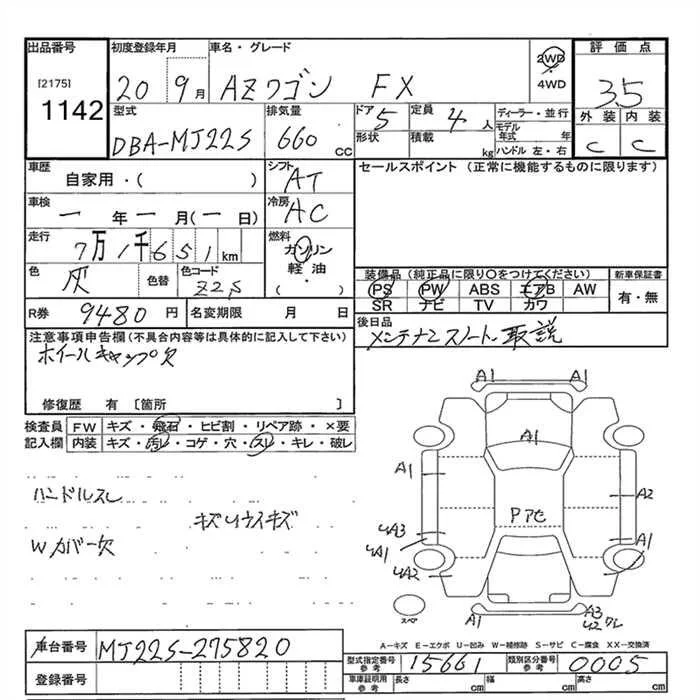 出品番号 初度登録年月 車名・グレード 2WD 4WD 評価点
[2175]
1142
20 9月 AZワゴン FX 3.5
型式 排気量 ドア 定員 ディーラー・並行 外装 内装
DBA-MJ22S 660 cc 5 4人 モデル年式 年
形状 積載 kg ハンドル 左・右 C C
車歴 シフト セールスポイント (正常に機能するものに限ります)
自家用・( ) AT
車検 冷房
一年一月(一日) AC
走行 燃料
7万1千651km ガソリン
軽油・
( )
色 色替 色コード 装備品(純正品に限り○をつけてください) 新車保証書
灰 Z2S PS PW ABS エアB AW 有・無
SR ナビ TV カワ
R券 9480円 名変期限 月 日 後日品
メンテナンスノート、取説
注意事項申告欄(不具合内容等は具体的に記入して下さい)
ホイールキャップ欠
修復歴 有 [箇所 ]
検査員 FW キズ・飛石・ヒビ割・リペア跡・×要
記入欄 内装 キズ・汚レ・コゲ・穴・スレ・キレ・破レ
A1 A1
A1
A1 A2
ハンドルスレ
キズ
Pアセ
Wカバー欠
4A3 A1
4A1
4A2
スペア
A1 A3
42
A-キズ E-エクボ U-凹み W-補修跡 S-サビ C-腐食 XX-交換済
車台番号 MJ22S-275820
型式指定番号 参考 15661 類別区分番号 参考 0005
登録番号
車庫証明用 参考 長さ cm 幅 cm 高さ cm